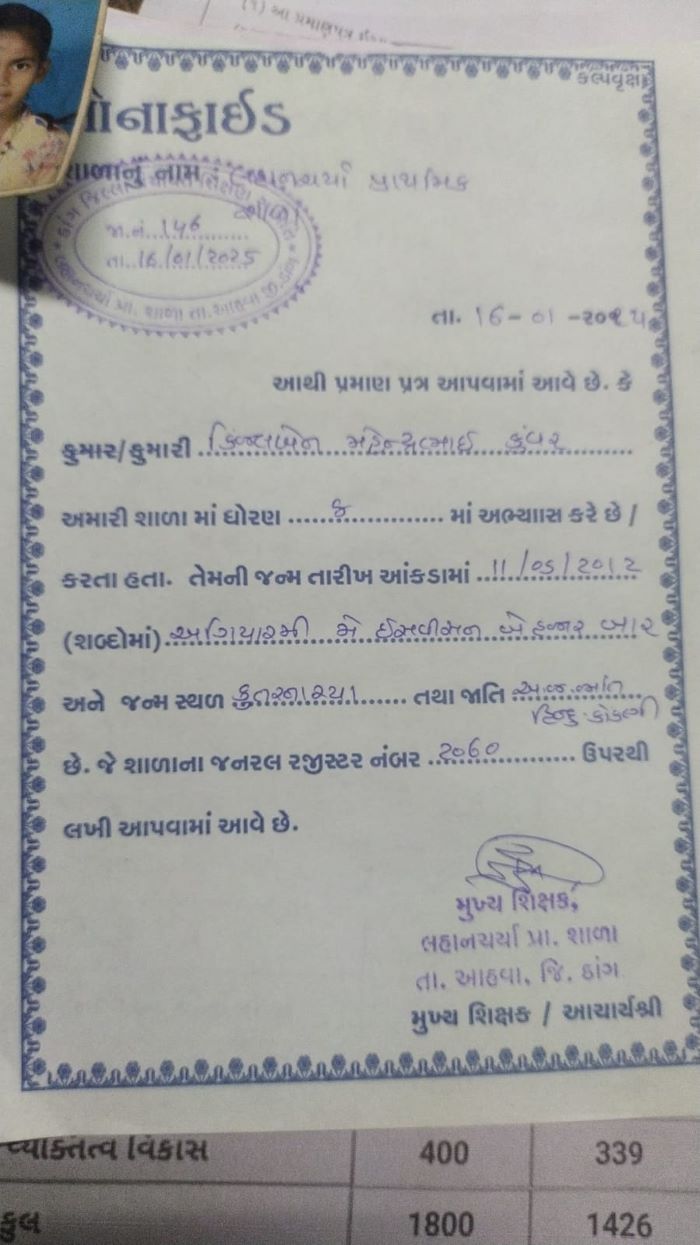 (૧) આ પ્રમાણપત્ર
કલ્પવૃક્ષ
બોનાફાઈડ
શાળાનું નામ : લહાનચર્યા પ્રાથમિક
શાળા
જા.નં. 146
તા. 16/01/2025
લહાનચર્યા પ્રા. શાળા તા. આહવા જી. ડાંગ
તા. 16-01-૨૦૨૫
આથી પ્રમાણ પત્ર આપવામાં આવે છે. કે
કુમાર/કુમારી કિંજલબેન મહેન્દ્રભાઈ કુંવર
અમારી શાળા માં ધોરણ ........ માં અભ્યાાસ કરે છે /
કરતા હતા. તેમની જન્મ તારીખ આંકડામાં 11/05/2012
(શબ્દોમાં) અગિયારમી મે ઈસવીસન બે હજાર બાર
અને જન્મ સ્થળ કુતરનાચ્યા તથા જાતિ અ.જ.જાતિ
હિન્દુ કોકણી
છે. જે શાળાના જનરલ રજીસ્ટર નંબર 2060 ઉપરથી
લખી આપવામાં આવે છે.
મુખ્ય શિક્ષક,
લહાનચર્યા પ્રા. શાળા
તા. આહવા, જિ. ડાંગ
મુખ્ય શિક્ષક / આચાર્યશ્રી
વ્યક્તિત્વ વિકાસ 400 339
કુલ 1800 1426